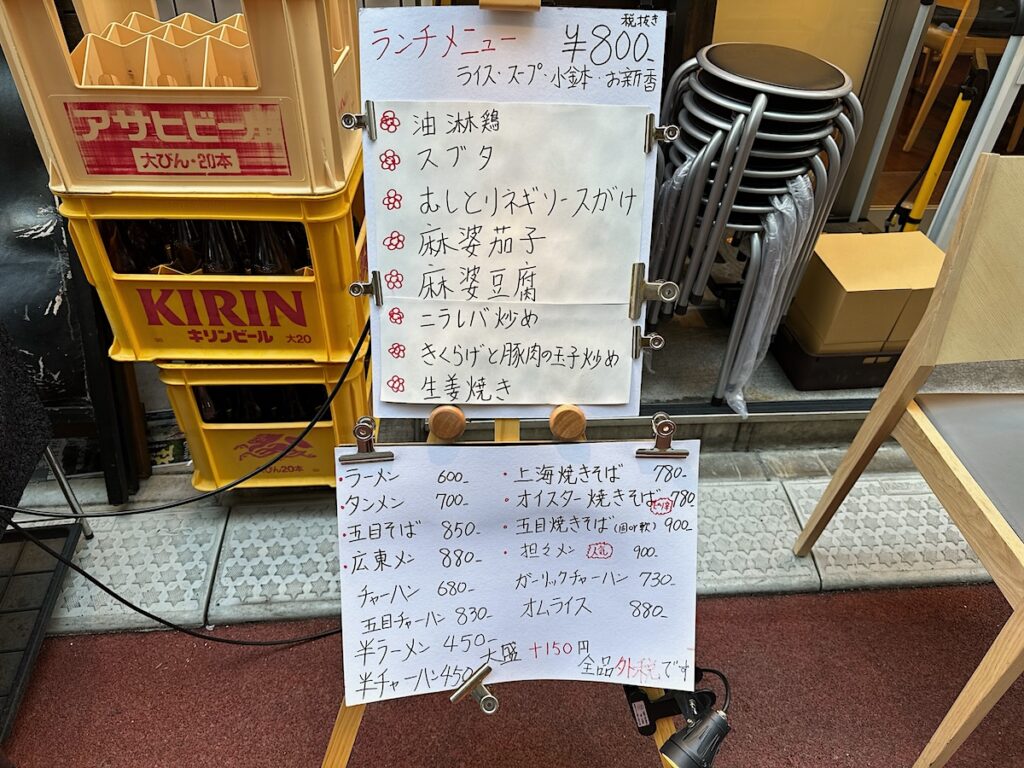 アサヒビール
大びん・20本
KIRIN
キリンビール 大20
大びん20本
税抜き
ランチメニュー ¥800-
ライス・スープ・小鉢・お新香
油淋鶏
スブタ
むしとりネギソースがけ
麻婆茄子
麻婆豆腐
ニラレバ炒め
きくらげと豚肉の玉子炒め
生姜焼き
・ラーメン 600-
・タンメン 700-
・五目そば 850-
・広東メン 880-
チャーハン 680-
五目チャーハン 830-
半ラーメン 450-
半チャーハン 450-
・上海焼きそば 780-
・オイスター焼きそば 780
・五目焼きそば(固or軟) 900-
・担々メン 人気 900-
ガーリックチャーハン 730-
オムライス 880-
大盛 +150円
全品外税です